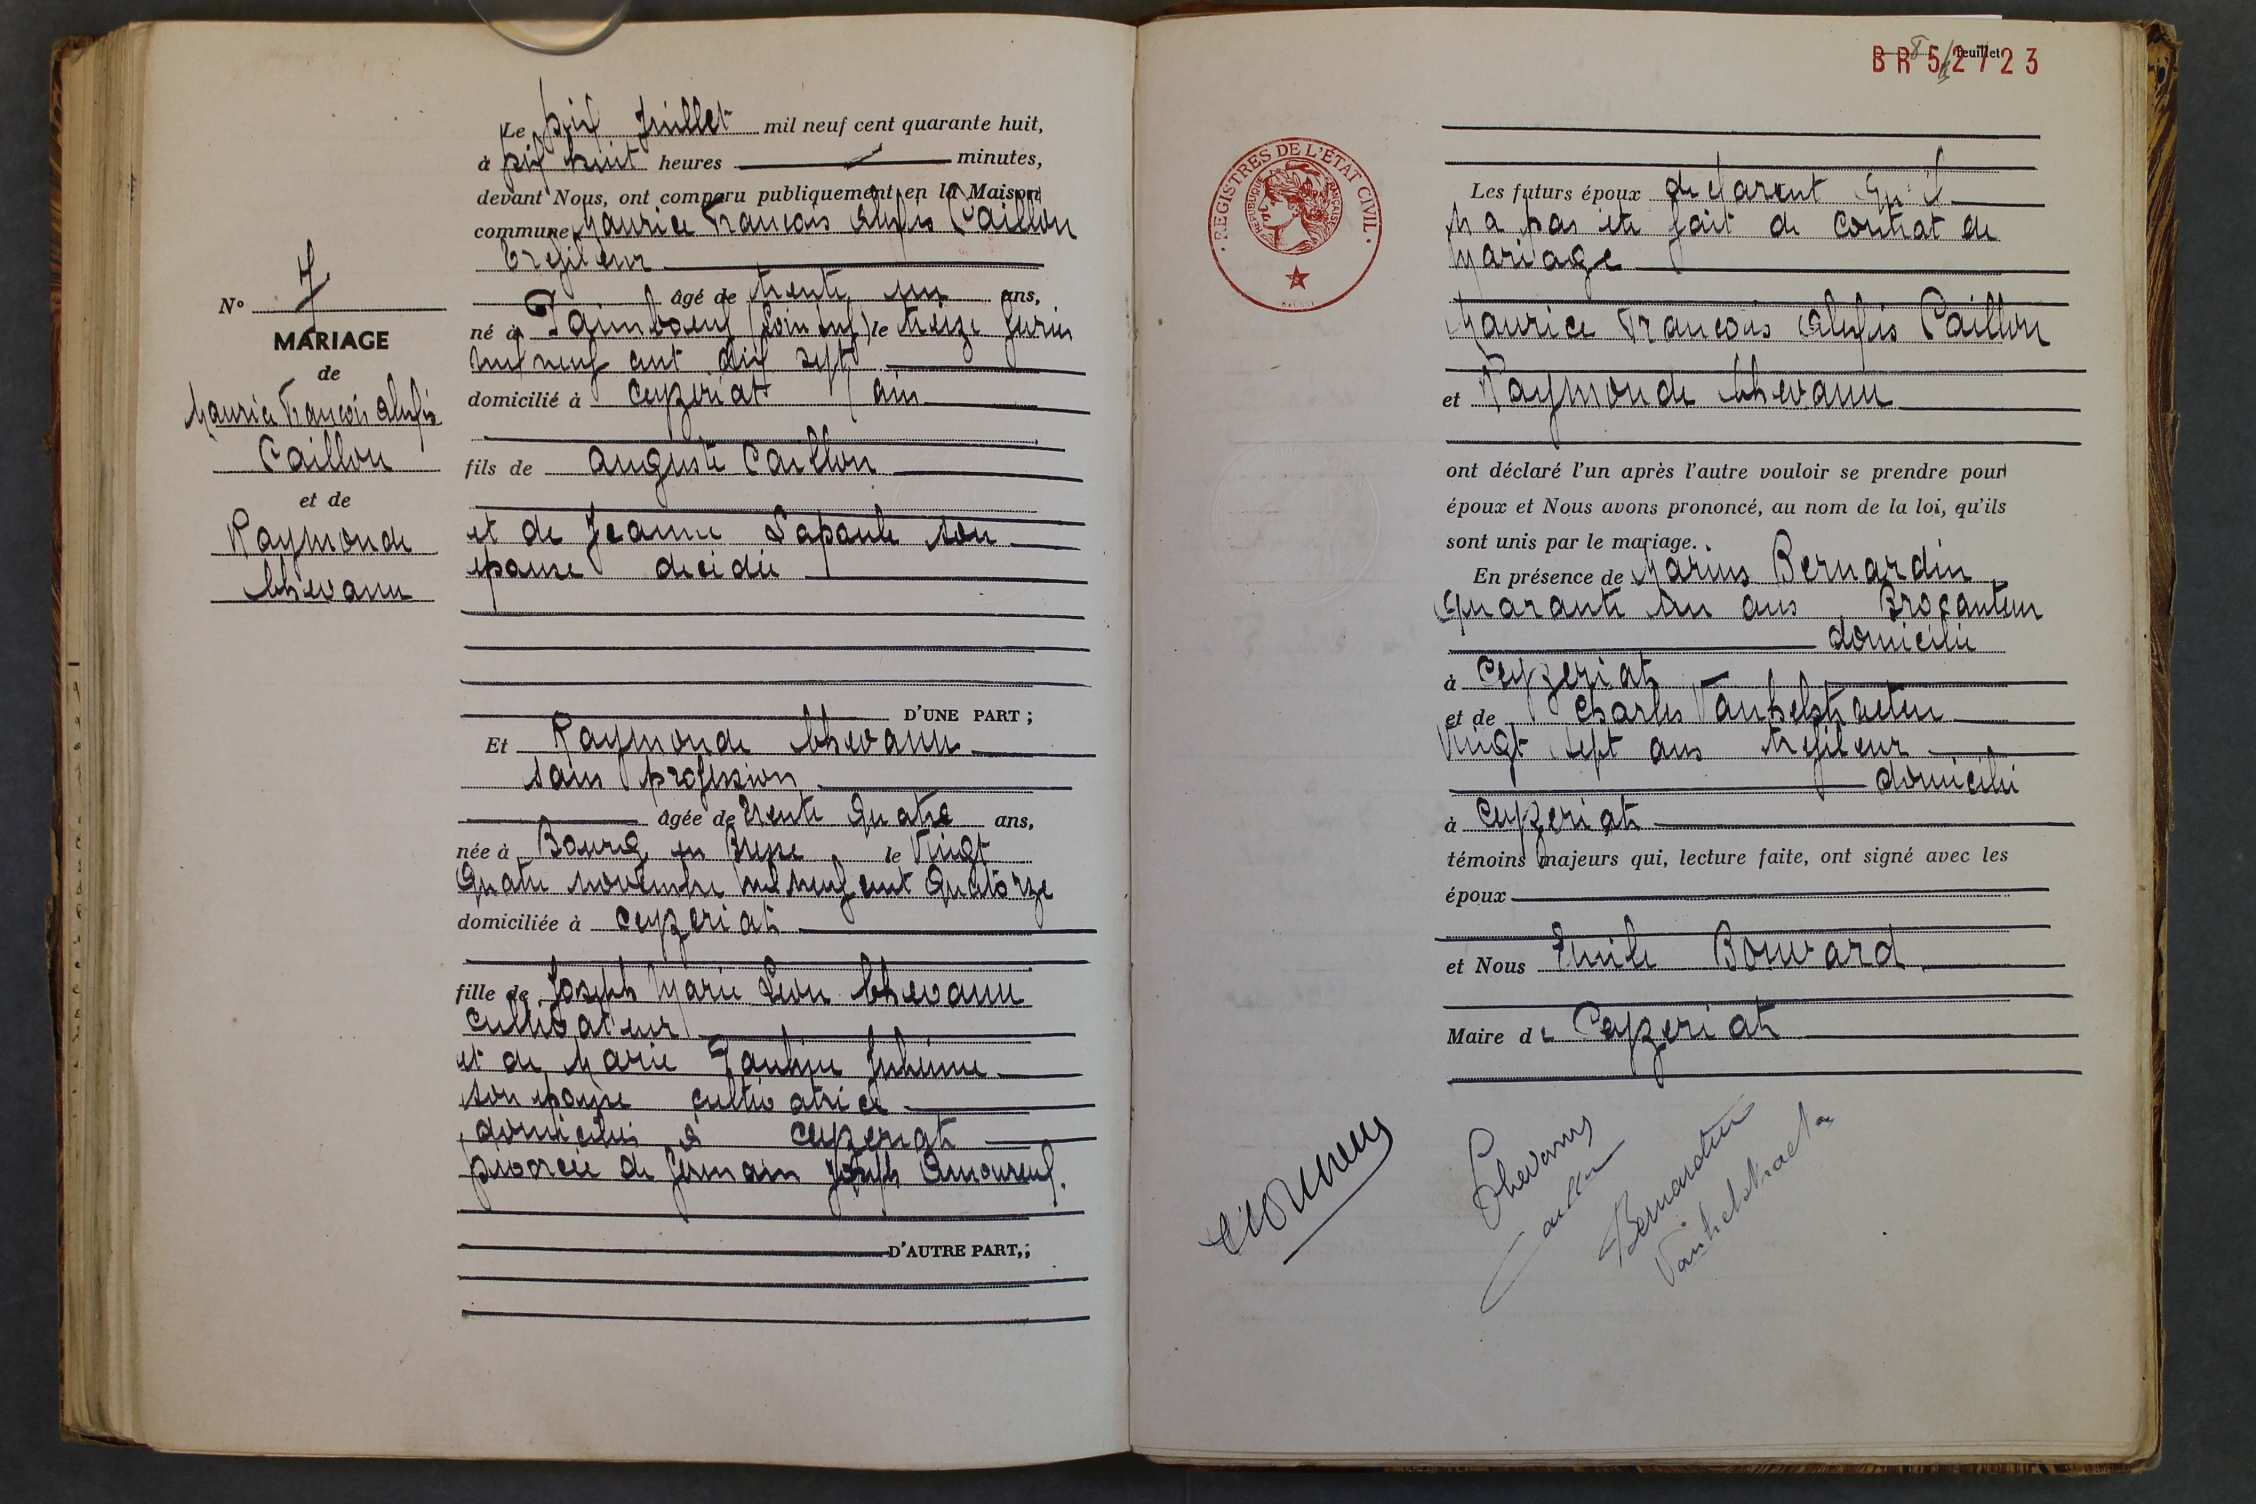 Le Dix Juillet mil neuf cent quarante huit,
à Dix huit heures minutes,
devant Nous, ont comparu publiquement en la Maison
commune Maurice François Alexis Caillon
Trefileur
âgé de trente un ans,
né à Paimboeuf (Loire Inf) le treize Janvier
mil neuf cent dix sept
domicilié à Ceyzeriat Ain
fils de Auguste Caillon
et de Jeanne Lapaule son
épouse décédée
D'UNE PART ;
Et Raymonde Chevanne
sans profession
âgée de trente quatre ans,
née à Bourg en Bresse le Vingt
Quatre novembre mil neuf cent quatorze
domiciliée à Ceyzeriat
fille de Joseph Marie Léon Chevanne
cultivateur
et de Marie Pauline
son épouse cultivatrice
domiciliés à Ceyzeriat
Divorcée de Germain Joseph
D'AUTRE PART,;
N° 7
MARIAGE
de
Maurice François Alexis
Caillon
et de
Raymonde
Chevanne
feuillet
BR 52723
REGISTRES DE L'ÉTAT CIVIL
RÉPUBLIQUE FRANÇAISE
Les futurs époux déclarent qu'il
n'a pas été fait de contrat de
mariage
Maurice François Alexis Caillon
et Raymonde Chevanne
ont déclaré l'un après l'autre vouloir se prendre pour
époux et Nous avons prononcé, au nom de la loi, qu'ils
sont unis par le mariage.
En présence de Marius Bernardin
quarante un ans Brocanteur
domicilié
à Ceyzeriat
et de Charles Vanhelstraeten
Vingt sept ans trefileur
domicilié
à Ceyzeriat
témoins majeurs qui, lecture faite, ont signé avec les
époux
et Nous Emile Bouvard
Maire de Ceyzeriat
Chevanne
Caillon
Bernardin
Vanhelstraeten